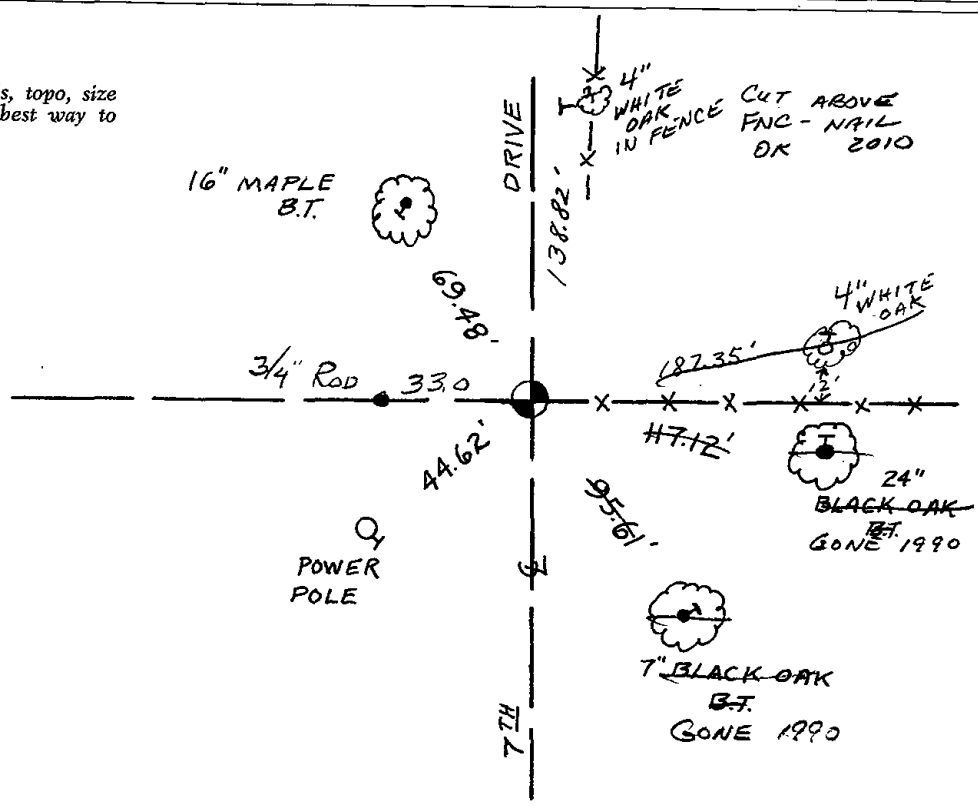 s, topo, size
best way to
4"
WHITE
OAK
IN FENCE
CUT ABOVE
FNC - NAIL
OK 2010
DRIVE
138.82'
16" MAPLE
B.T.
69.48'
4" WHITE
OAK
187.35'
2'
3/4" ROD
33.0
117.12'
44.62'
24"
BLACK OAK
B.T.
GONE 1990
95.61'
POWER
POLE
℄
7" BLACK OAK
B.T.
GONE 1990
7TH